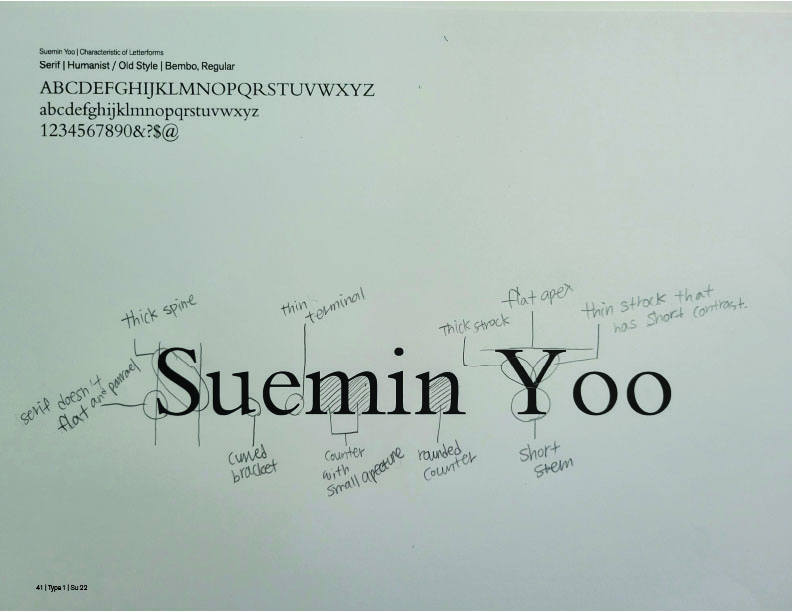 Suemin Yoo | Characteristic of Letterforms
Serif | Humanist / Old Style | Bembo, Regular
ABCDEFGHIJKLMNOPQRSTUVWXYZ
abcdefghijklmnopqrstuvwxyz
1234567890&?$@
thick spine
thin
terminal
flat apex
thick strock
thin strock that
has short contrast.
serif doesn't
flat and parrael
Suemin Yoo
curved
bracket
counter
with
small apecture
rounded
counter
short
stem
41 | Type 1 | Su 22